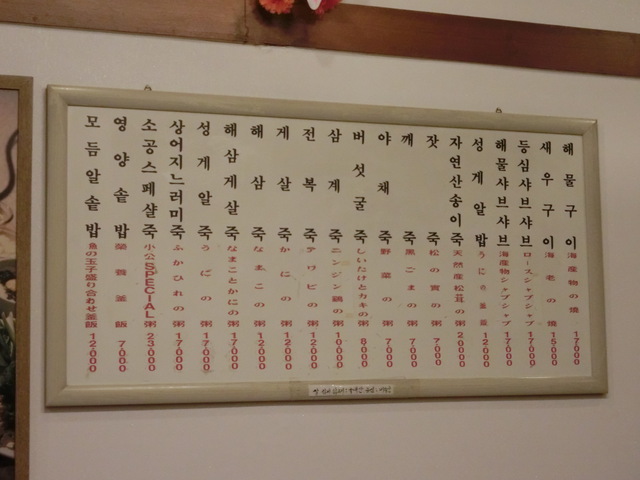 해물구이 海産物の焼 17,000
새우구이 海老の焼 15,000
등심샤브샤브 ロースシャブシャブ 17,000
해물샤브샤브 海産物シャブシャブ 17,000
성게알밥 うにの釜飯 12,000
자연산송이죽 天然産松茸の粥 20,000
잣죽 松の實の粥 7,000
깨죽 黒ごまの粥 7,000
야채죽 野菜の粥 7,000
버섯굴죽 しいたけとカキの粥 8,000
삼계죽 ニンジン鶏の粥 10,000
전복죽 アワビの粥 12,000
게살죽 かにの粥 12,000
해삼죽 なまこの粥 12,000
해삼게살죽 なまことかにの粥 17,000
성게알죽 うにの粥 17,000
상어지느러미죽 ふかひれの粥 17,000
소공스페샬죽 小公SPECIAL粥 23,000
영양솥밥 栄養釜飯 7,000
모듬알솥밥 魚の玉子盛り合わせ釜飯 12,000